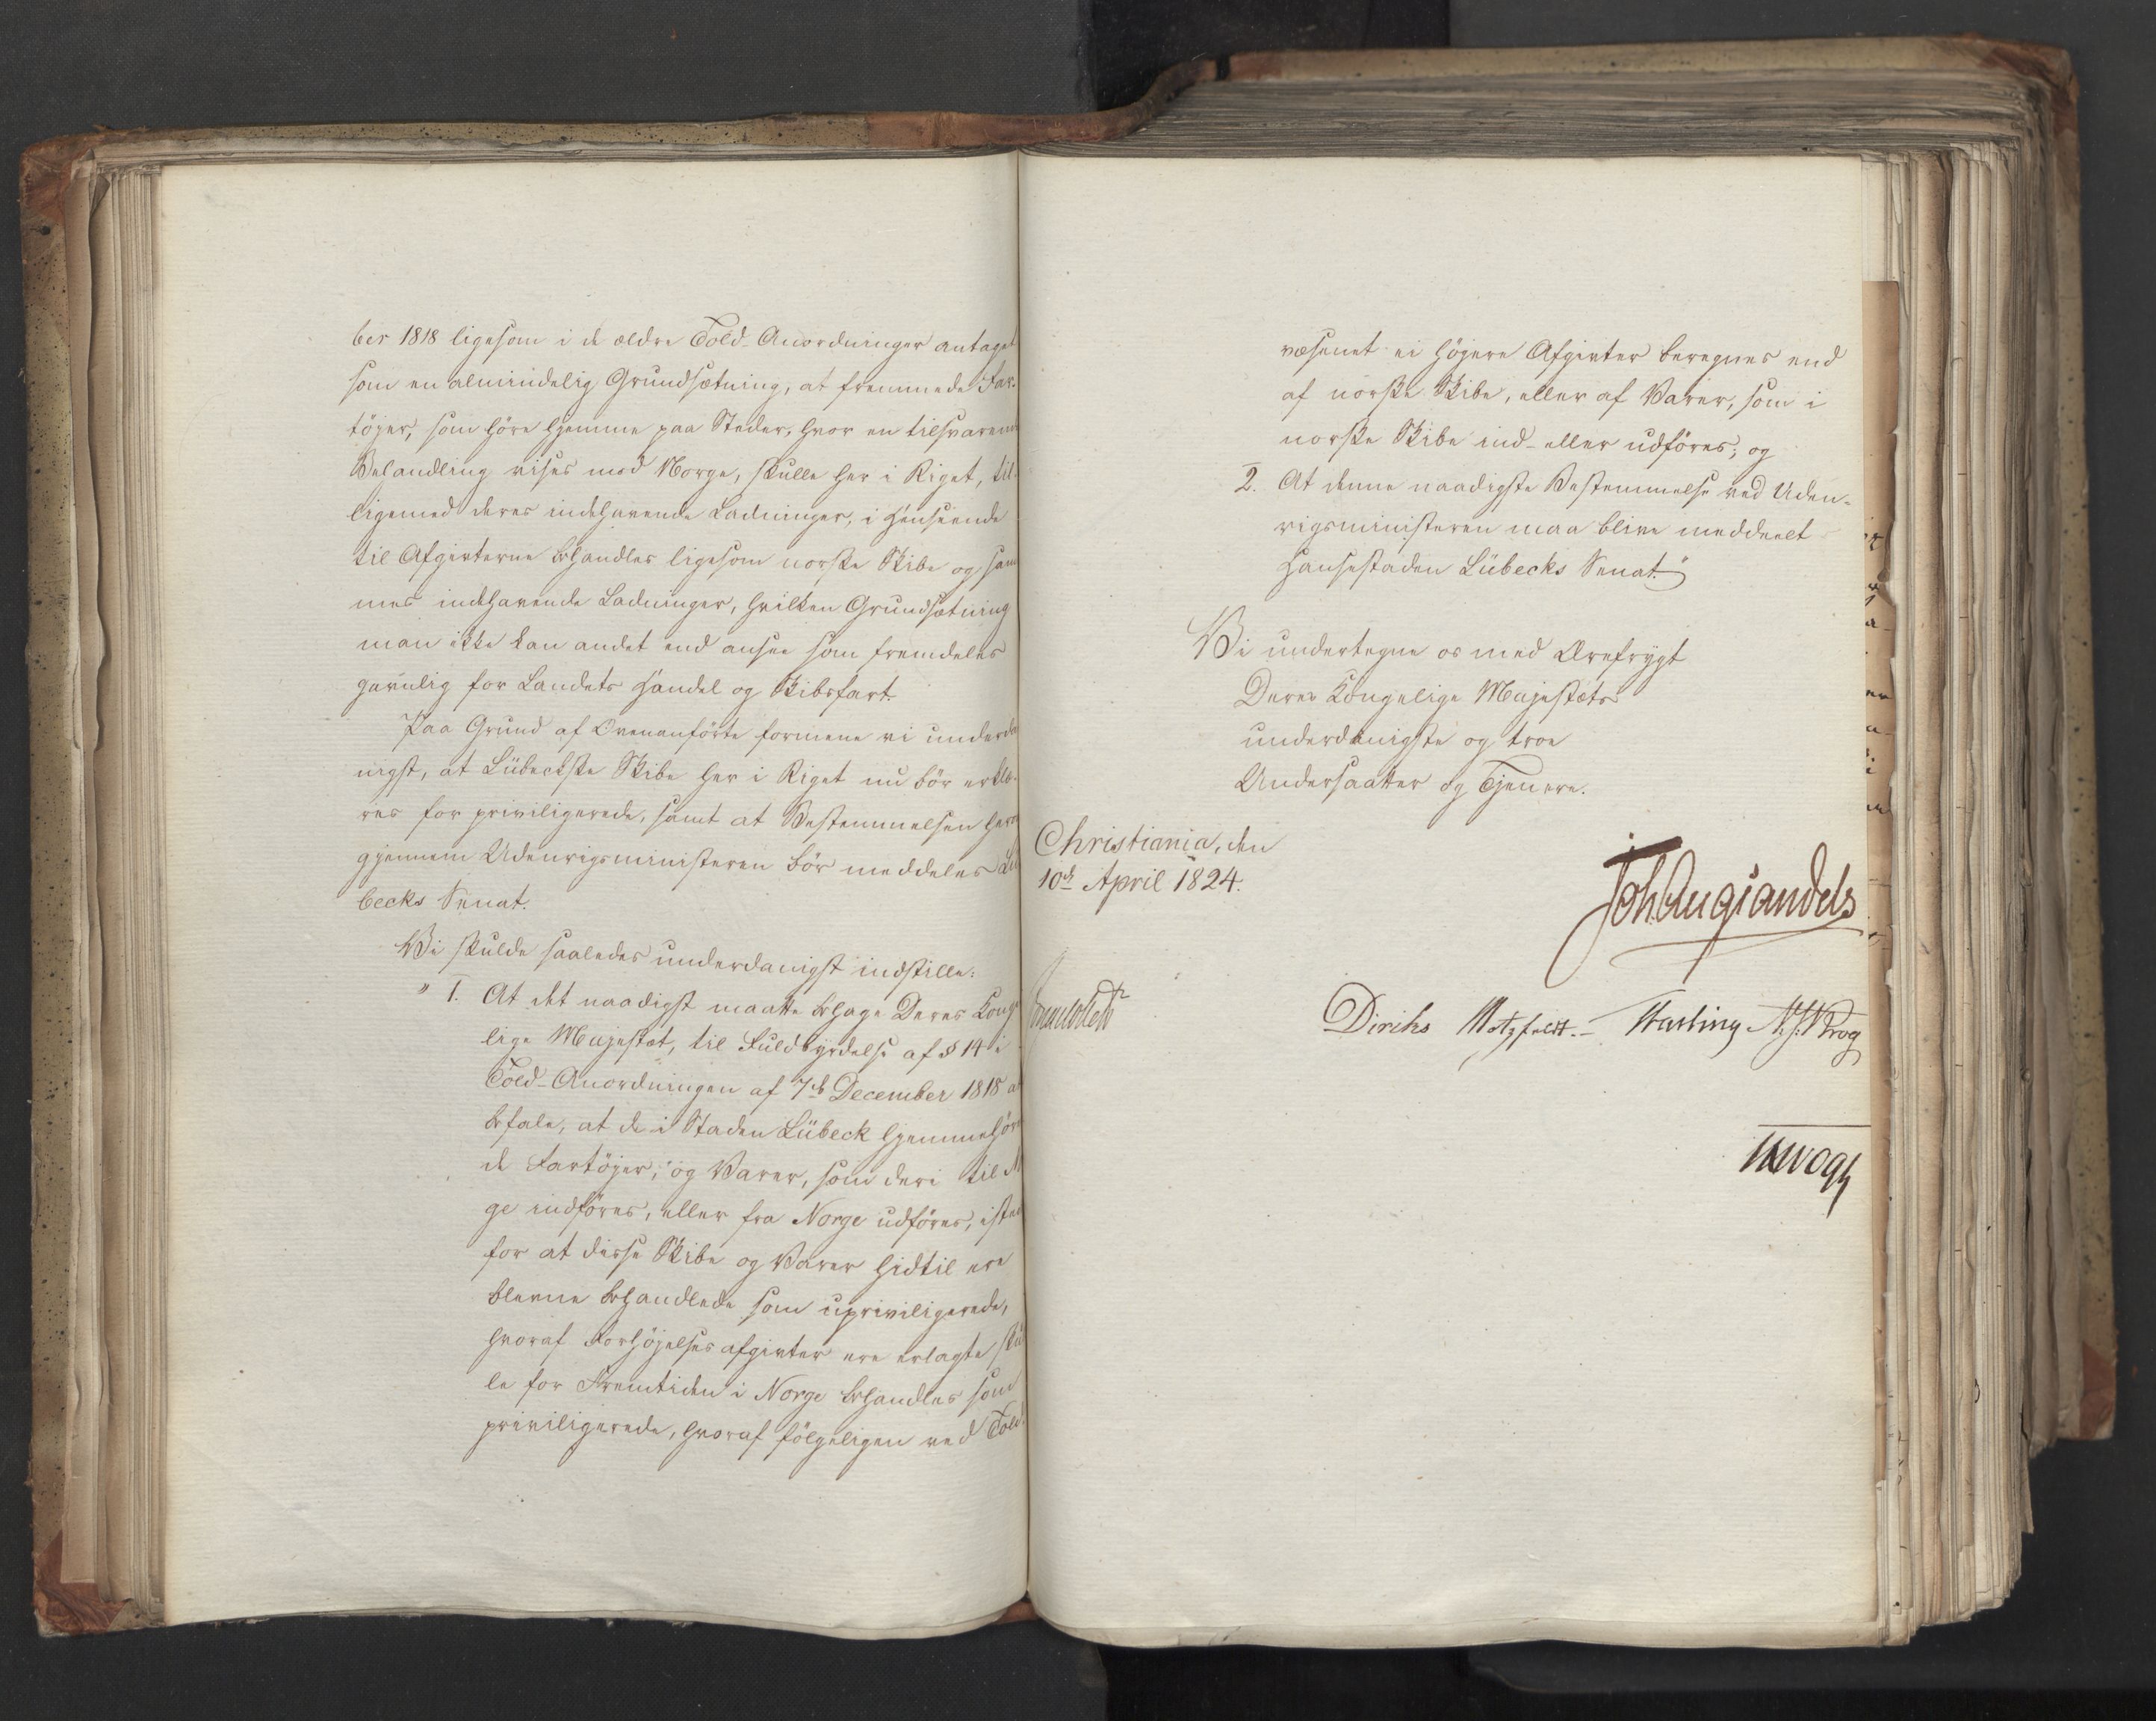 ber 1818 ligesom i de ældre Told-Anordninger antaget
som en almindelig Grundsætning, at fremmede Far-
töjer, som höre hjemme paa Steder, hvor en tilsvarende
Behandling vises mod Norge, skulle her i Riget, til-
ligemed deres indehavende Ladninger, i Henseende
til Afgivterne behandles ligesom norske Skibe og sam
mes indehavende Ladninger, hvilken Grundsætning
man ikke kan andet end ansee som fremdeles
gavnlig for Landets Handel og Skibsfart.
Paa Grund af Ovenanförte formene vi underda
nigst, at Lübeckske Skibe her i Riget nu bör erklæ-
res for priviligerede, samt at Bestemmelsen herom
gjennem Udenrigsministeren bör meddeles Lü
becks Senat.
Vi skulde saaledes underdanigst indstille:
" 1. At det naadigst maatte behage Deres Konge
lige Majestæt, til Fuldbyrdelse af § 14 i
Told-Anordningen af 7de December 1818 at
befale, at de i Staden Lübeck hjemmehören
de Fartöjer, og Varer, som deri til Nor
ge indföres, eller fra Norge udföres, isteden
for at disse Skibe og Varer hidtil ere
blevne behandlede som upriviligerede,
hvoraf Forhöjelsesafgivter ere erlagte, skul
le for Fremtiden i Norge behandles som
priviligerede, hvoraf fölgeligen ved Told-
væsenet ei höjere Afgivter beregnes end
af norske Skibe, eller af Varer, som i
norske Skibe ind- eller udföres; og
2. At denne naadigste Bestemmelse ved Uden-
rigsministeren maa blive meddeelt
Hansestaden Lübecks Senat."
Vi undertegne os med Ærefrygt
Deres Kongelige Majestæts
underdanigste og troe
Undersaatter og Tjenere.
Christiania, den
10de April 1824.
Joh Aug Sandels
Diriks Motzfeldt.- Treschow Krog